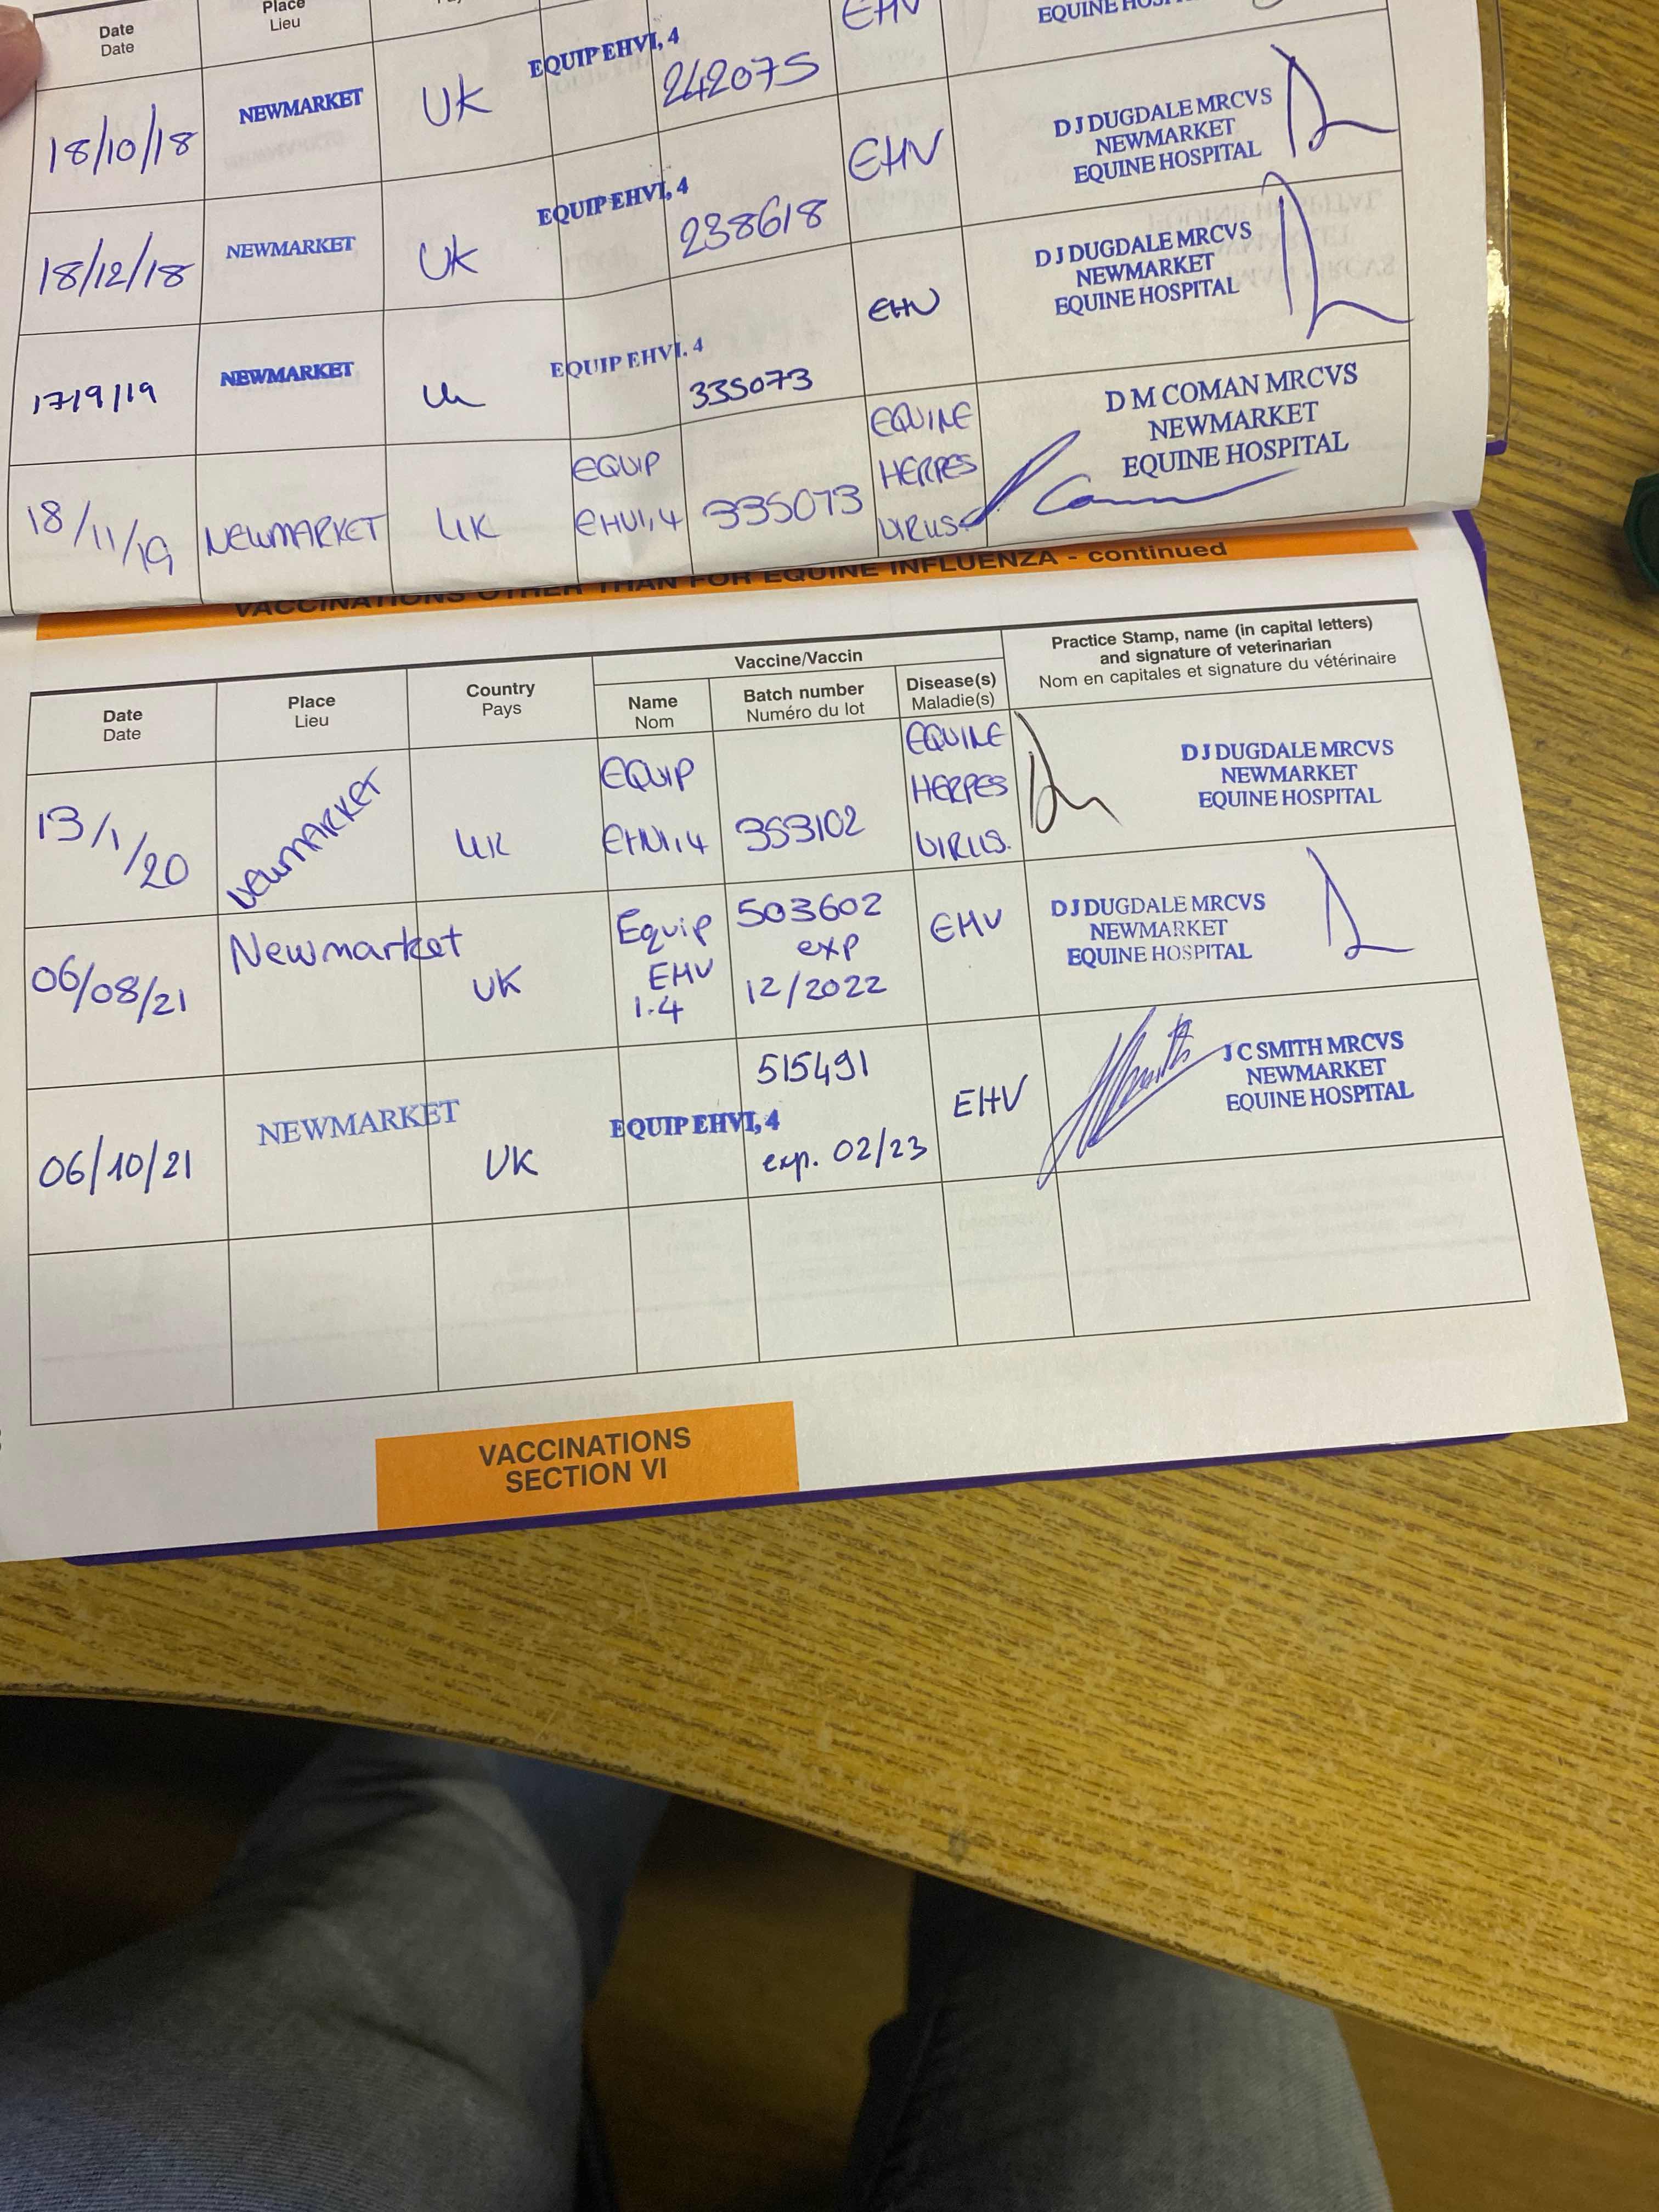 Date
Date
Place
Lieu
EHV
18/10/18
NEWMARKET
UK
EQUIP EHV1, 4
242075
EHV
D J DUGDALE MRCVS
NEWMARKET
EQUINE HOSPITAL
18/12/18
NEWMARKET
UK
EQUIP EHV1, 4
238618
EHV
D J DUGDALE MRCVS
NEWMARKET
EQUINE HOSPITAL
17/9/19
NEWMARKET
UK
EQUIP EHV1. 4
335073
D M COMAN MRCVS
NEWMARKET
EQUINE HOSPITAL
18/11/19
NEWMARKET
UK
EQUIP
EHV1,4
335073
EQUINE
HERPES
VIRUS.
VACCINATIONS OTHER THAN FOR EQUINE INFLUENZA - continued
Date
Date
Place
Lieu
Country
Pays
Vaccine/Vaccin
Name
Nom
Batch number
Numéro du lot
Disease(s)
Maladie(s)
Practice Stamp, name (in capital letters)
and signature of veterinarian
Nom en capitales et signature du vétérinaire
13/1/20
NEWMARKET
UK
EQUIP
EHV1,4
353102
EQUINE
HERPES
VIRUS.
D J DUGDALE MRCVS
NEWMARKET
EQUINE HOSPITAL
06/08/21
Newmarket
UK
Equip
EHV
1.4
503602
exp
12/2022
EHV
D J DUGDALE MRCVS
NEWMARKET
EQUINE HOSPITAL
06/10/21
NEWMARKET
UK
EQUIP EHV1, 4
515491
exp. 02/23
EHV
J C SMITH MRCVS
NEWMARKET
EQUINE HOSPITAL
VACCINATIONS
SECTION VI